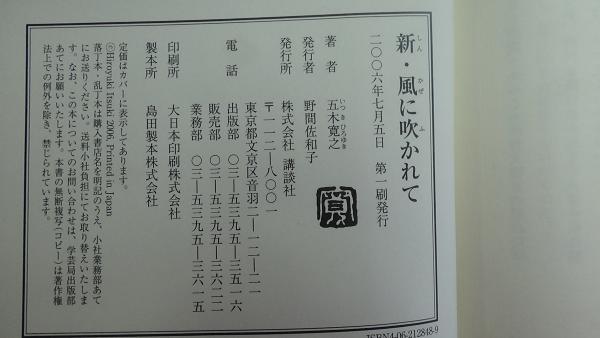 新・風に吹かれて
しん かぜ ふ
二〇〇六年七月五日 第一刷発行
著者 五木寛之
いつき ひろゆき
発行者 野間佐和子
発行所 株式会社 講談社
〒一一二―八〇〇一
東京都文京区音羽二―一二―二一
電話 出版部 〇三―五三九五―三五一六
販売部 〇三―五三九五―三六二二
業務部 〇三―五三九五―三六一五
印刷所 大日本印刷株式会社
製本所 島田製本株式会社
定価はカバーに表示してあります。
©Hiroyuki Itsuki 2006, Printed in Japan
落丁本・乱丁本は購入書店名を明記のうえ、小社業務部あて
にお送りください。送料小社負担にてお取り替えいたしま
す。なお、この本についてのお問い合わせは、学芸局出版部
あてにお願いいたします。本書の無断複写(コピー)は著作権
法上での例外を除き、禁じられています。
ISBN4-06-212848-9